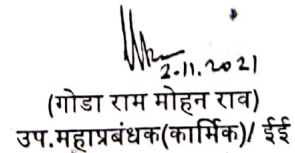 2.11.2021
(गोडा राम मोहन राव)
उप.महाप्रबंधक(कार्मिक)/ ईई